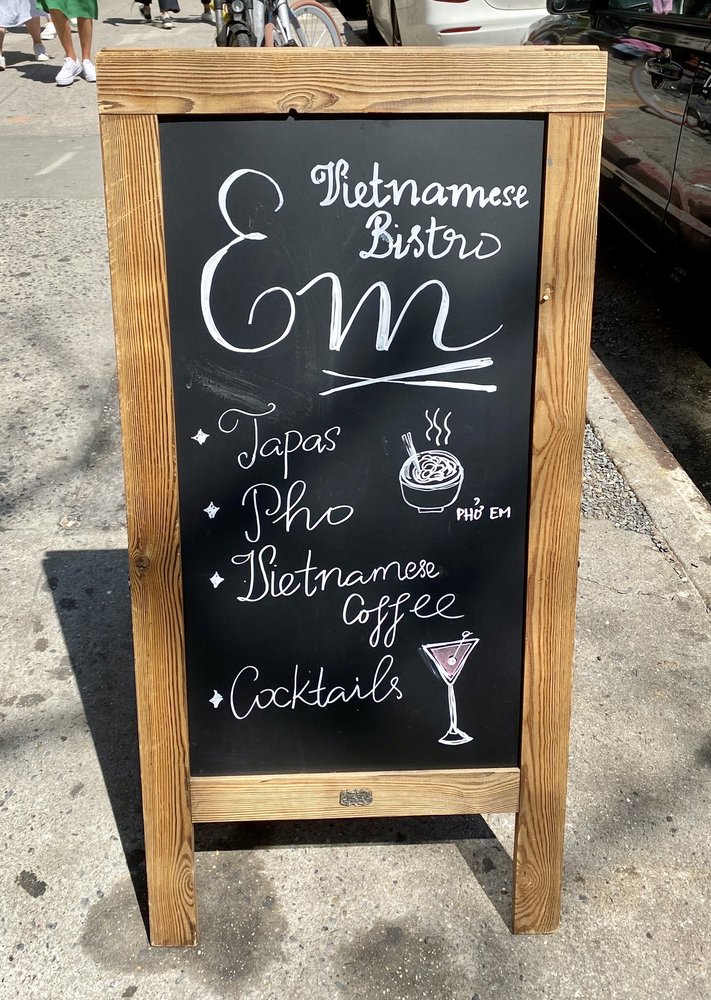 Vietnamese
Bistro
Em
Tapas
Pho
PHỞ EM
Vietnamese
Coffee
Cocktails